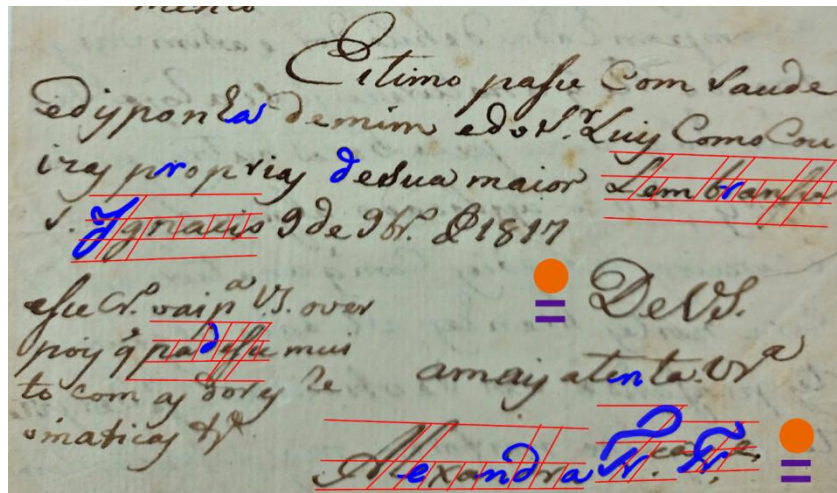 mento
Estimo pase Com saude
e dispor de mim e do Sr. Luis Como Cou
izas proprias de sua maior Lembransa
S. Ignacio 9 de 9br.o de 1817
De VS.
ese Cr.o vai p.a VS. ver
pois q padese mui
to com as dores Re
omaticas &a
amais atenta. Vra
Alexandra